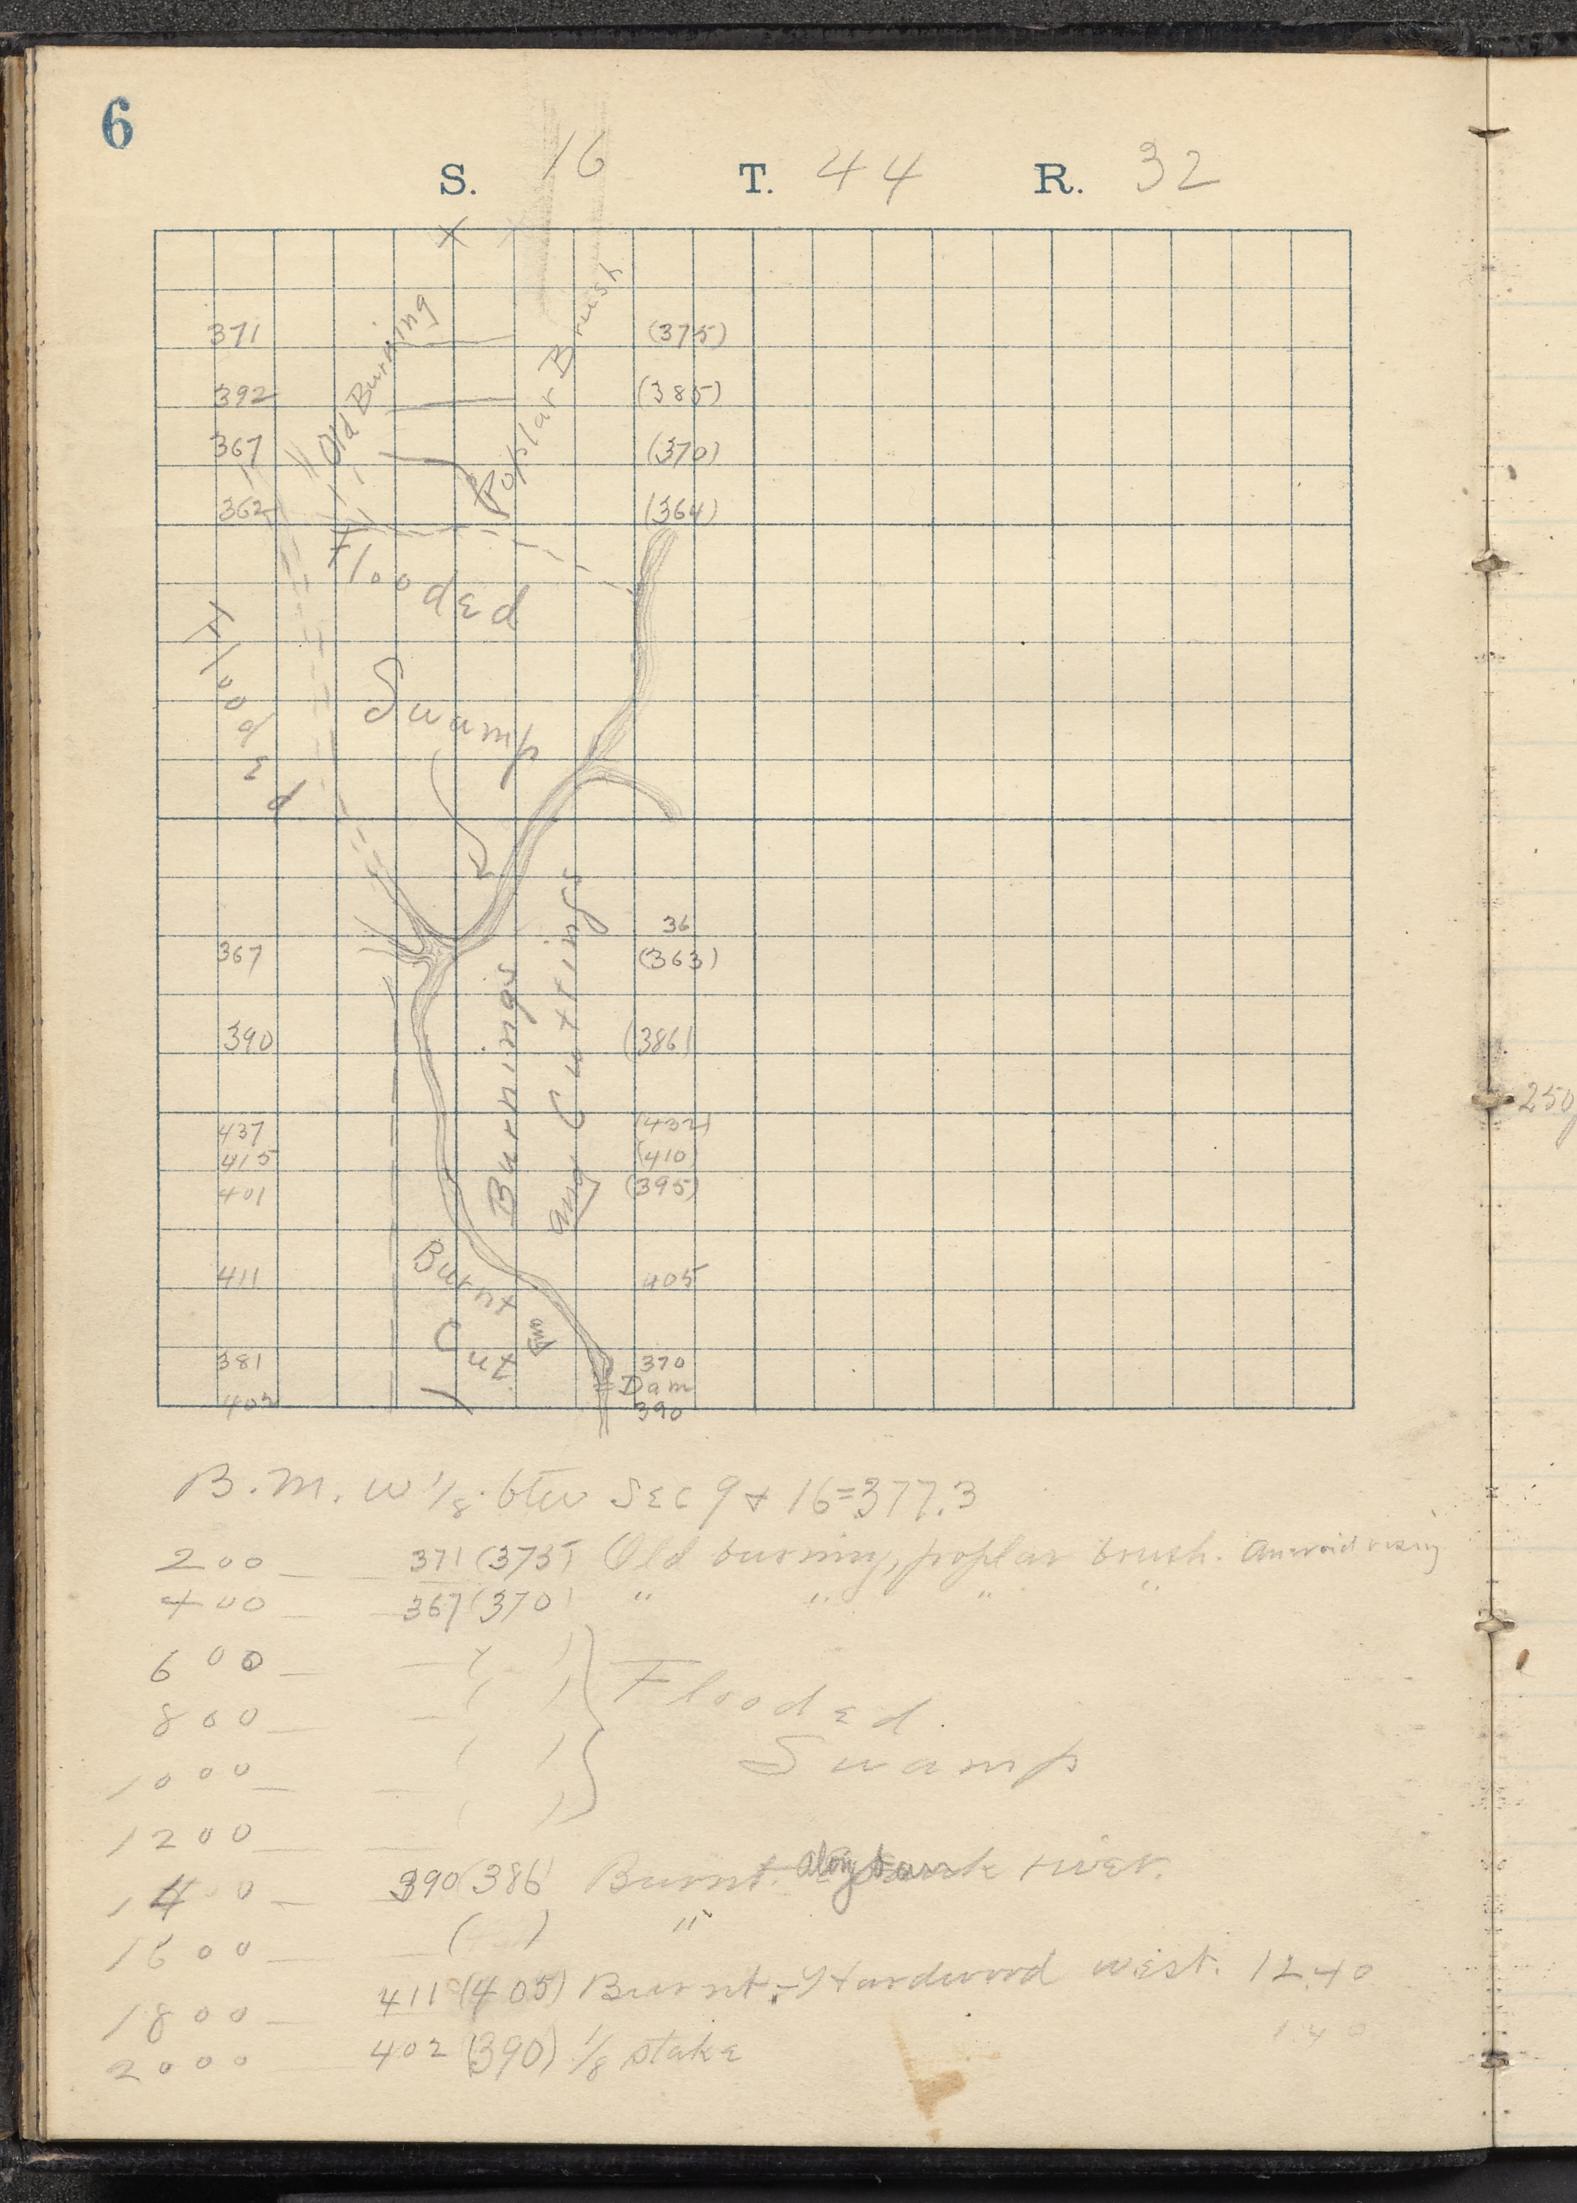 6
S. 16 T. 44 R. 32
371 (375)
392 (385)
367 (370)
362 (364)
Old Burning
Poplar Brush
Flooded
Flooded
Swamp
36
367 (363)
390 (386)
437 (432)
415 (410)
401 (395)
411 405
381 370
Dam
402 390
Burnings
and Cuttings
Burnt
and
Cut
250
B.M. W 1/8 btw Sec 9 + 16 = 377.3
200 — 371 (375) Old burning, poplar brush. Aneroid rising
400 — 367 (370) " " " "
600 — — ( )
800 — — ( ) Flooded
1000 — — ( ) Swamp
1200 — — ( )
1400 — 390 (386) Burnt. along bank river.
1600 — — ( ) "
1800 — 411 (405) Burnt. Hardwood west. 12.40
2000 402 (390) 1/8 stake 1.40